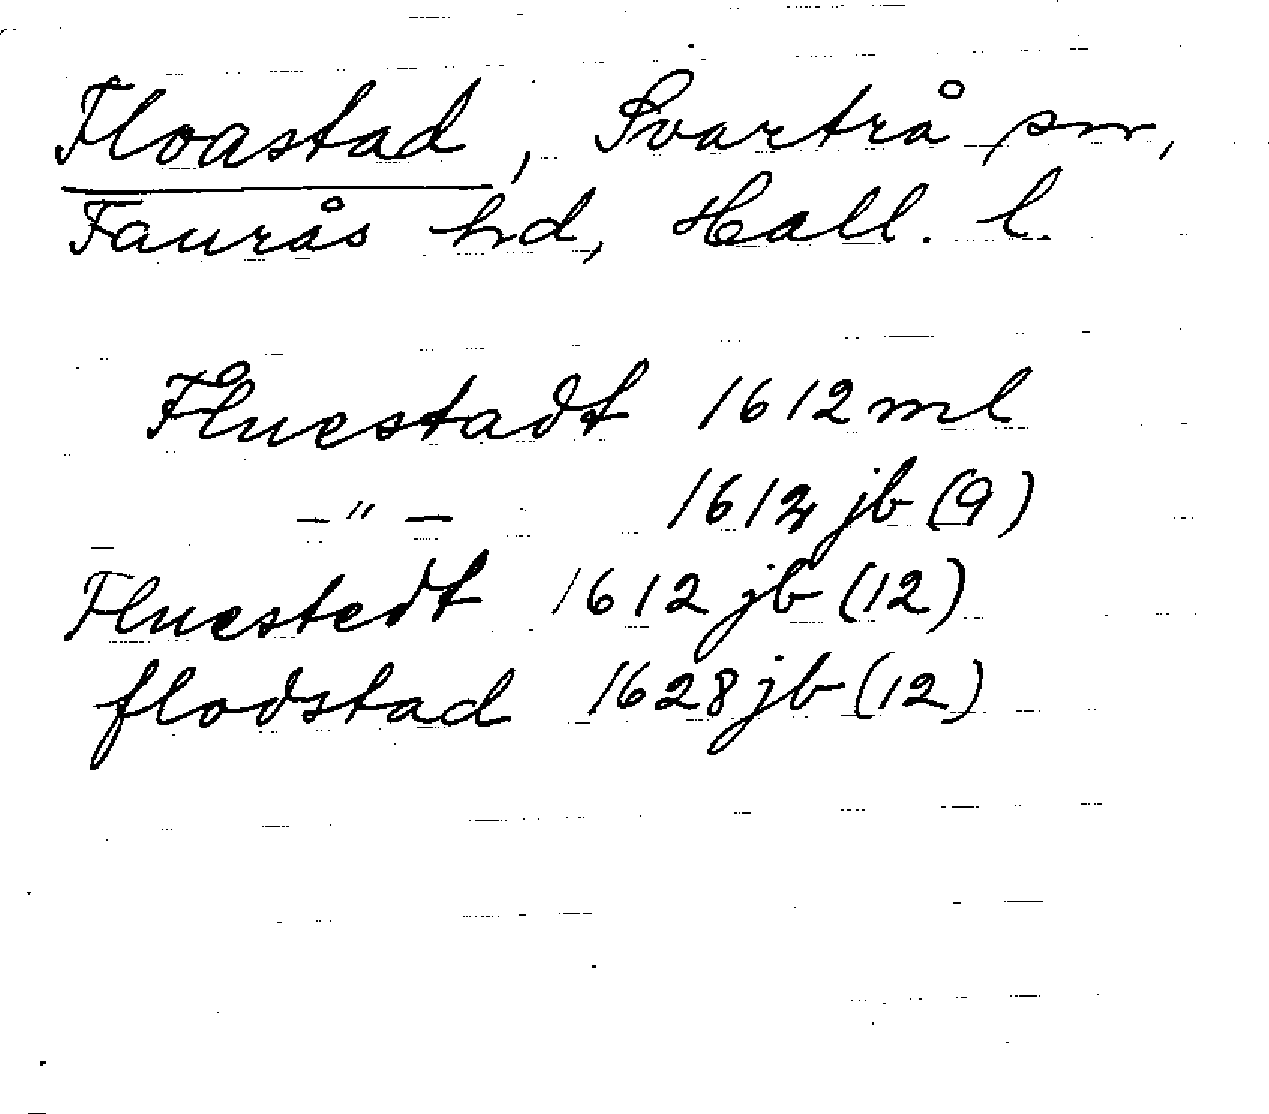 Floastad, Svartrå sn,
Faurås hd, Hall. l.
Fluestadt 1612 ml
—"— 1612 jb (9)
Fluestedt 1612 jb (12)
flodstad 1628 jb (12)